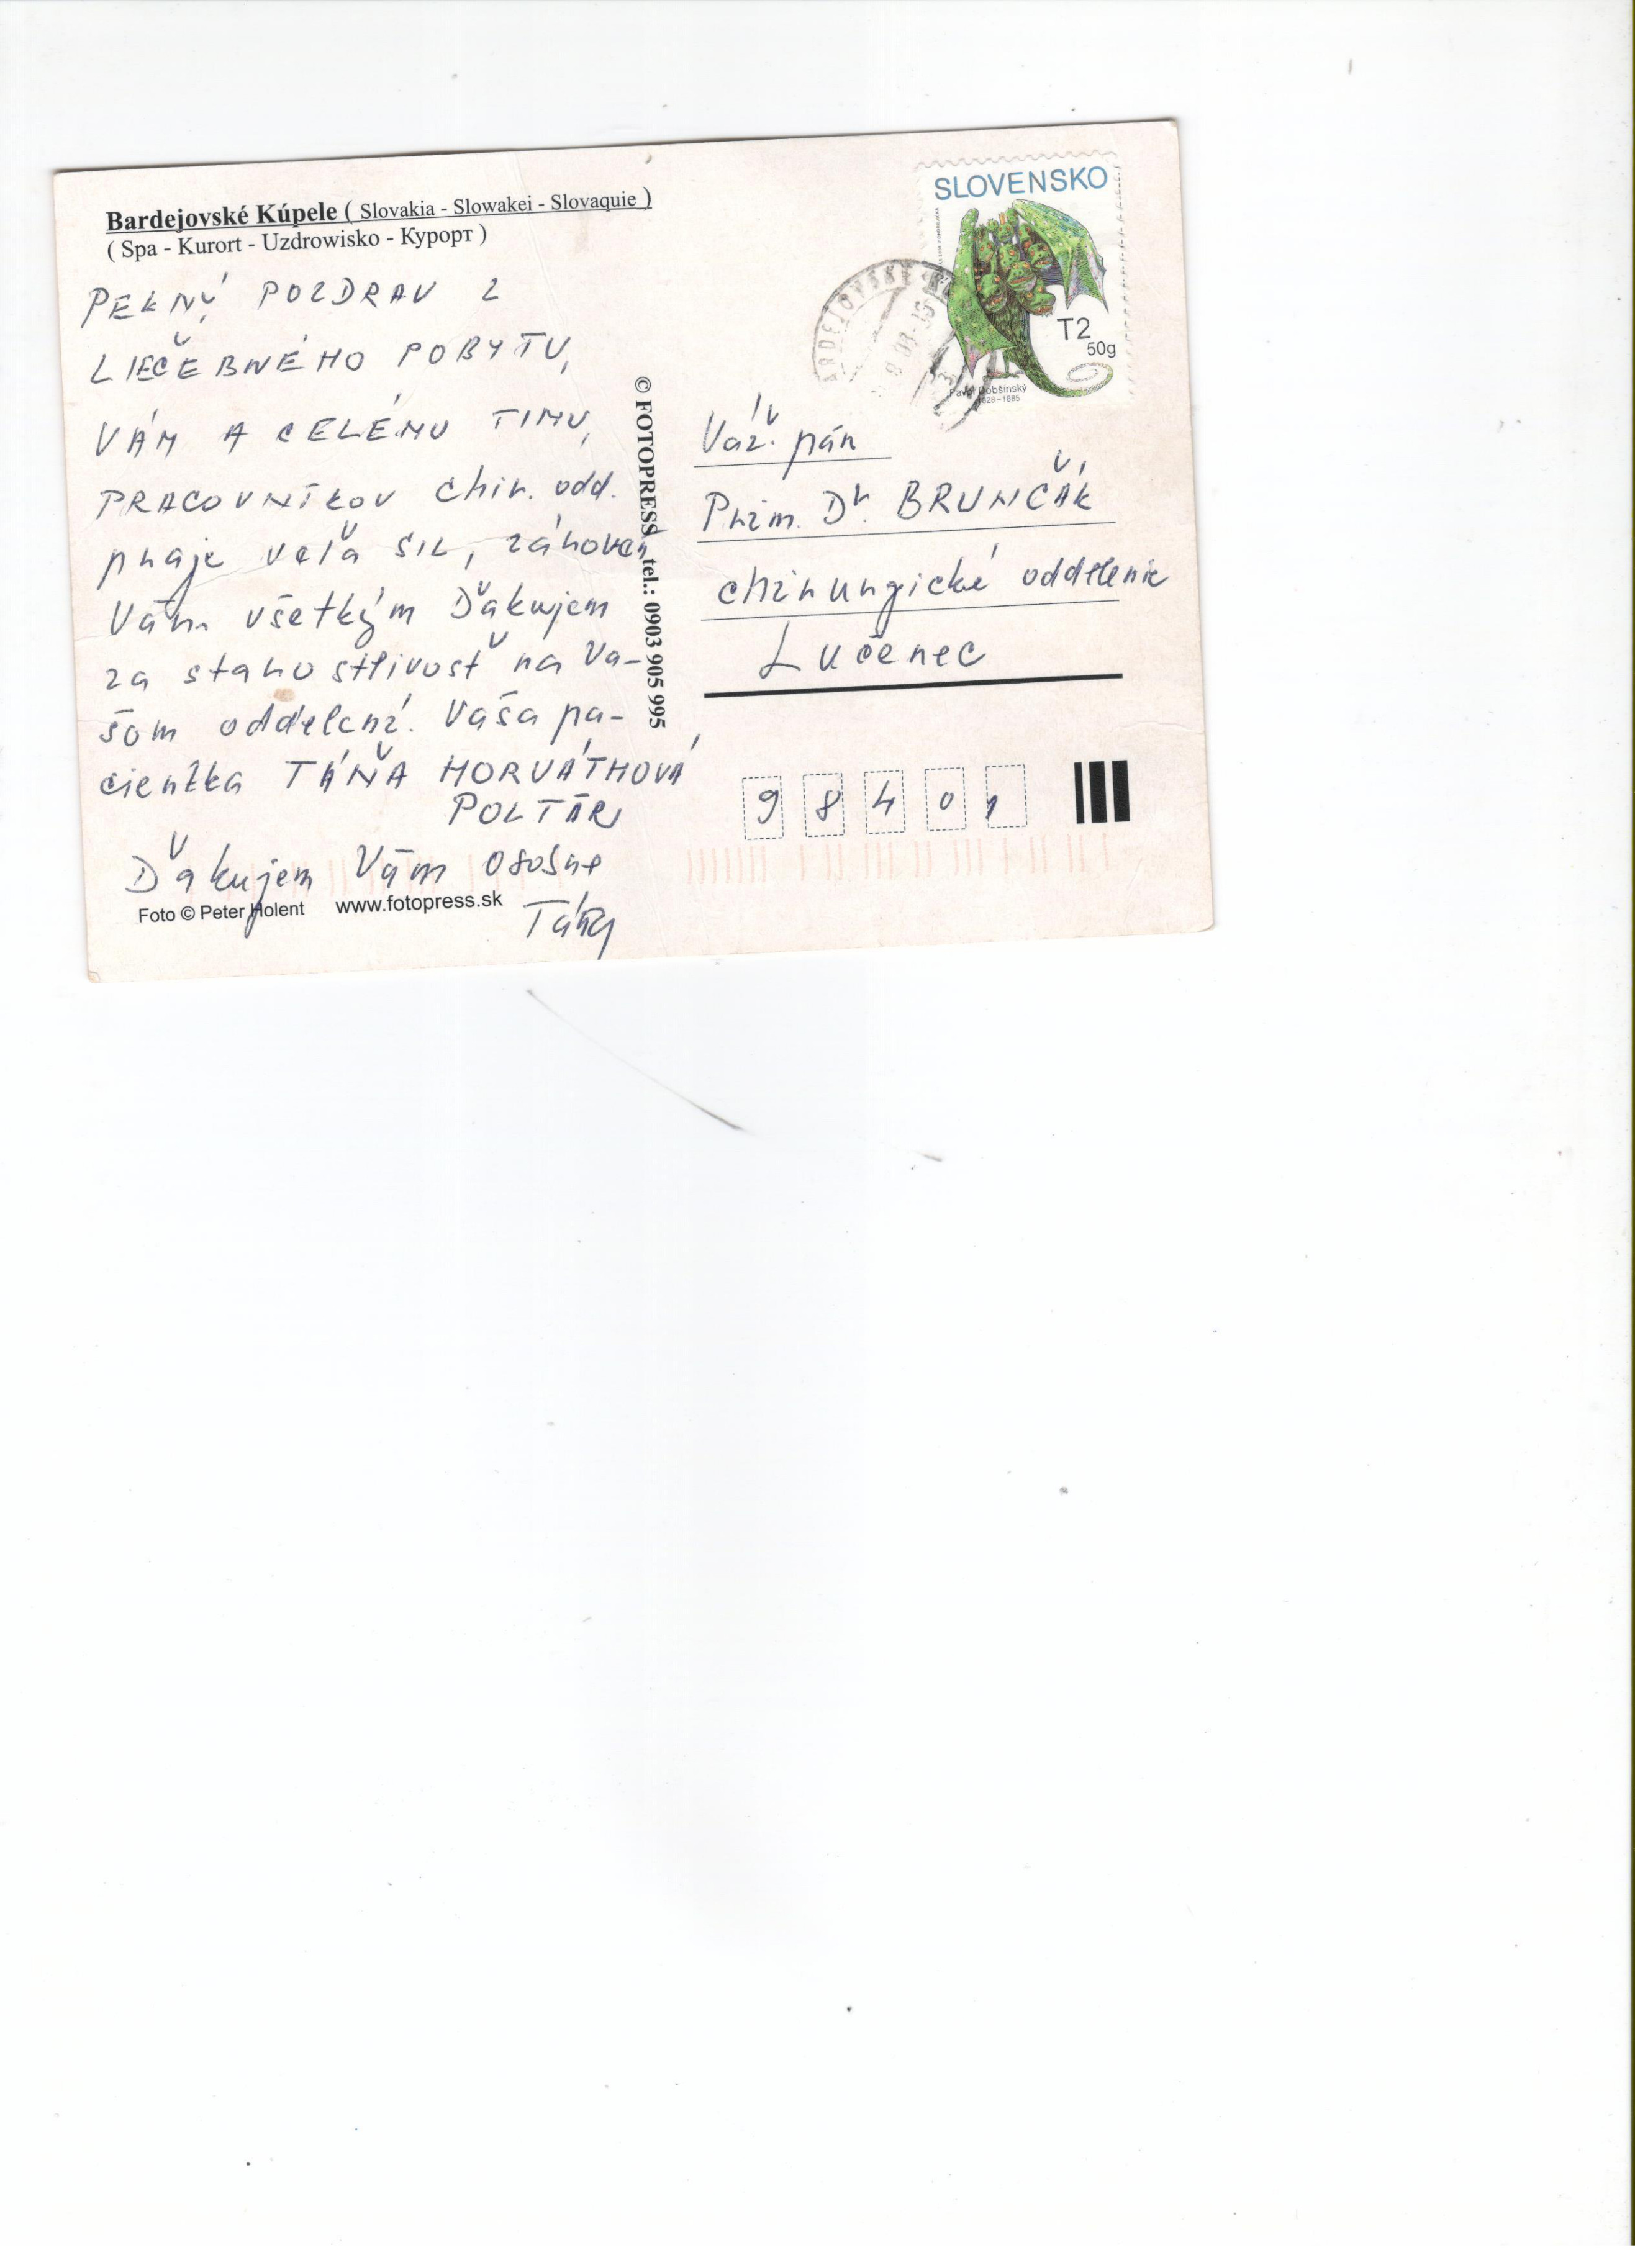 Bardejovské Kúpele ( Slovakia - Slowakei - Slovaquie )
( Spa - Kurort - Uzdrowisko - Курорт )
PEKNÝ POZDRAV Z
LIEČEBNÉHO POBYTU,
VÁM A CELÉMU TIMU,
PRACOVNÍKOV chir. odd.
praje veľa SIL, zároveň
Vám všetkým Ďakujem
za starostlivosť na Va-
šom oddelení. Vaša pa-
cientka TÁŇA HORVÁTHOVÁ
POLTÁR
Ďakujem Vám osobne
Táňa
Foto © Peter Holent www.fotopress.sk
© FOTOPRESS, tel.: 0903 905 995
SLOVENSKO
T2
50g
Pavol Dobšinský
1828 - 1885
BARDEJOVSKÉ
Váž. pán
Prim. Dr. BRUNČÁK
chirurgické oddelenie
Lučenec
98401